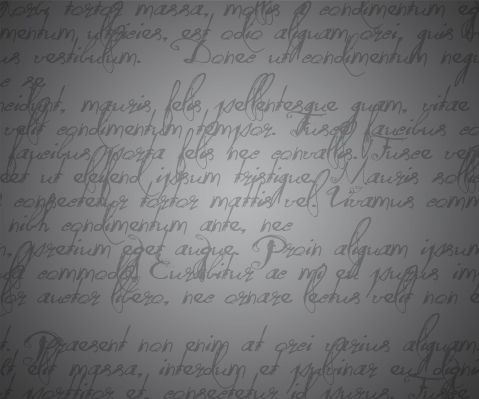 tortor massa, mollis a condimentum
mentum ultricies, est odio aliquam orci, quis
us vestibulum. Donec ut condimentum nequ
e se
mauris felis pellentesque quam, vitae
velit condimentum tempor. Fusce faucibus
faucibus porta felis nec convallis. Fusce ven
eet ut eleifend ipsum tristique. Mauris
consectetur tortor mattis vel. Vivamus comm
nibh condimentum ante, nec
pretium eget augue. Proin aliquam ipsum
commodo. Curabitur ac mi eu purus
auctor libero, nec ornare lectus velit non
Praesent non enim at orci varius aliquam
elit massa, interdum et pulvinar eu, digni
porttitor et, consectetur id purus. Fusce